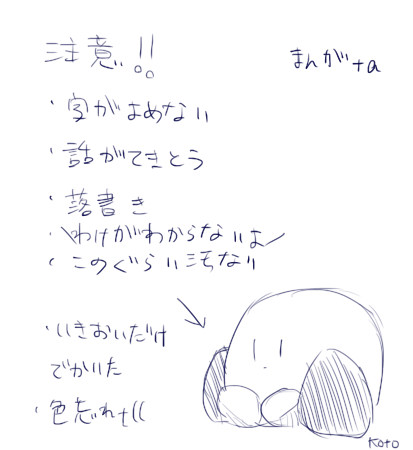 注意!!
まんが+α
・字がよめない
・話がてきとう
・落書き
・\わけがわからないよ/
・このぐらい三モない
・いきおいだけ
でかいた
・色忘れ
KOTO